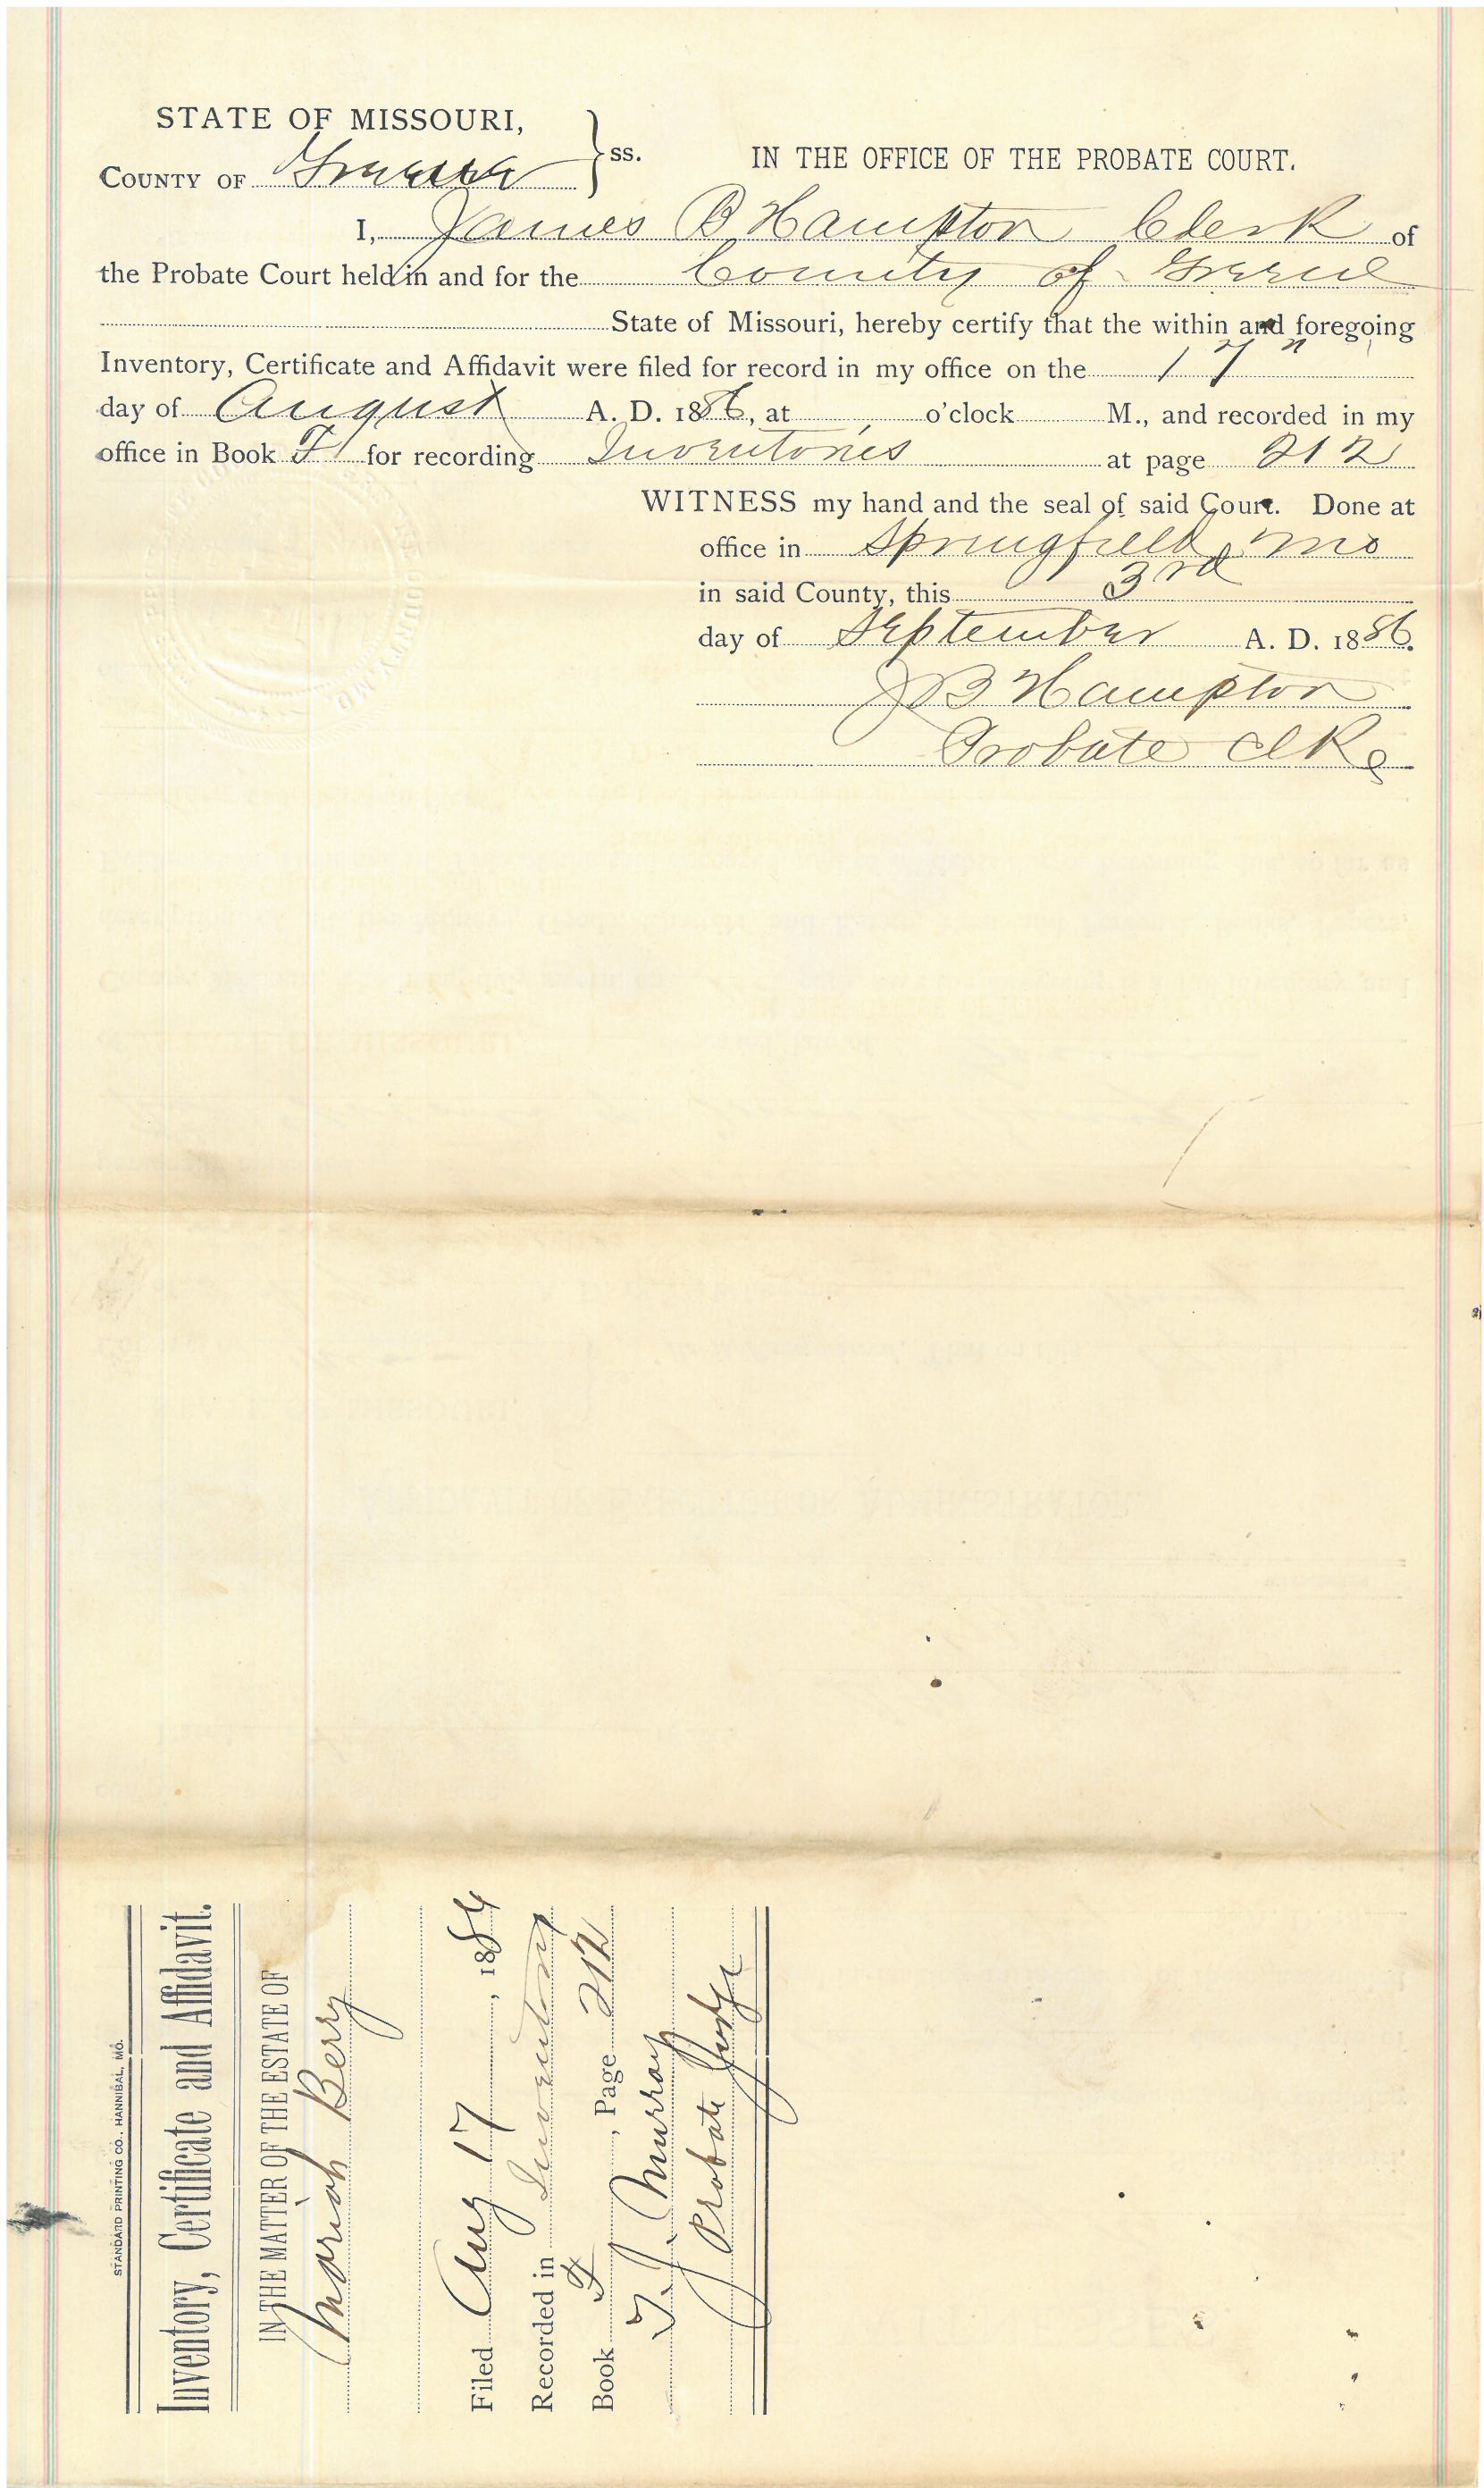 STATE OF MISSOURI,
COUNTY OF Greene } ss.
IN THE OFFICE OF THE PROBATE COURT.
I, James B Hampton Clerk of
the Probate Court held in and for the County of Greene
State of Missouri, hereby certify that the within and foregoing
Inventory, Certificate and Affidavit were filed for record in my office on the 17"
day of August A. D. 1886, at o'clock M., and recorded in my
office in Book F for recording Inventories at page 212
WITNESS my hand and the seal of said Court. Done at
office in Springfield, Mo
in said County, this 3rd
day of September A. D. 1886.
J B Hampton
Probate Clk
STANDARD PRINTING CO., HANNIBAL, MO.
Inventory, Certificate and Affidavit.
IN THE MATTER OF THE ESTATE OF
Mariah Berry
Filed Aug 17, 1886
Recorded in Inventory
Book F, Page 212
T. J. Murray
Probate Judge